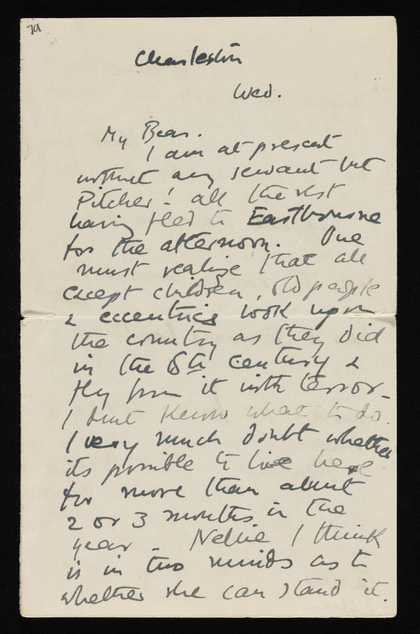 Charleston
Wed.
My Bear.
I am at present
without any servant but
Pitcher! all the rest
having fled to Eastbourne
for the afternoon. One
must realize that all
except children, old people
& eccentrics look upon
the country as they did
in the 18th century &
fly from it with terror_
I dont know what to do.
I very much doubt whether
its possible to live here
for more than about
2 or 3 months in the
year _ Nellie I think
is in two minds as to
whether she can stand it.